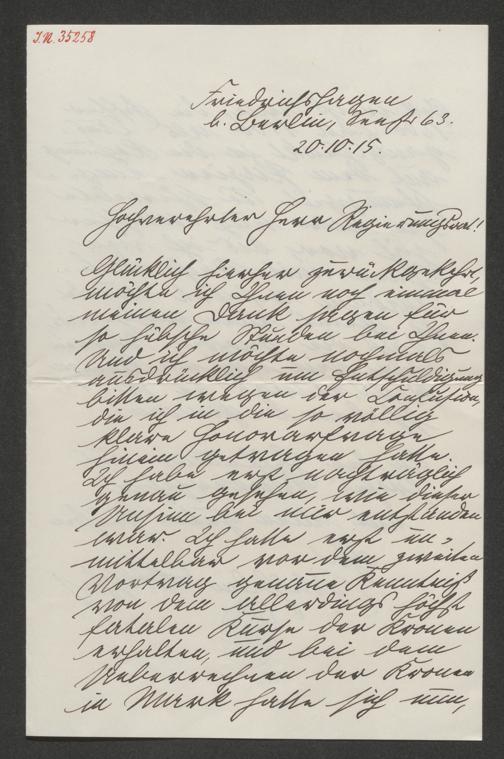 I.N. 35258
Friedrichshagen
b. Berlin, Seestr 63.
20·10·15.
Hochverehrter Herr Regierungsrat!
Glücklich hierher zurückgekehrt,
möchte ich Ihnen noch einmal
meinen Dank sagen für
so hübsche Stunden bei Ihnen.
Und ich möchte nochmals
ausdrücklich um Entschuldigung
bitten wegen der Confusion,
die ich in die so völlig
klare Honorarfrage
hinein getragen hatte.
Ich habe erst nachträglich
genau gesehen, wie dieser
Unsinn bei mir entstanden
war. Ich hatte erst un-
mittelbar vor dem zweiten
Vortrag genaue Kenntniß
von dem allerdings höchst
fatalen Kurse der Kronen
erhalten, und bei dem
Ueberrechnen der Kronen
in Mark hatte sich nun,